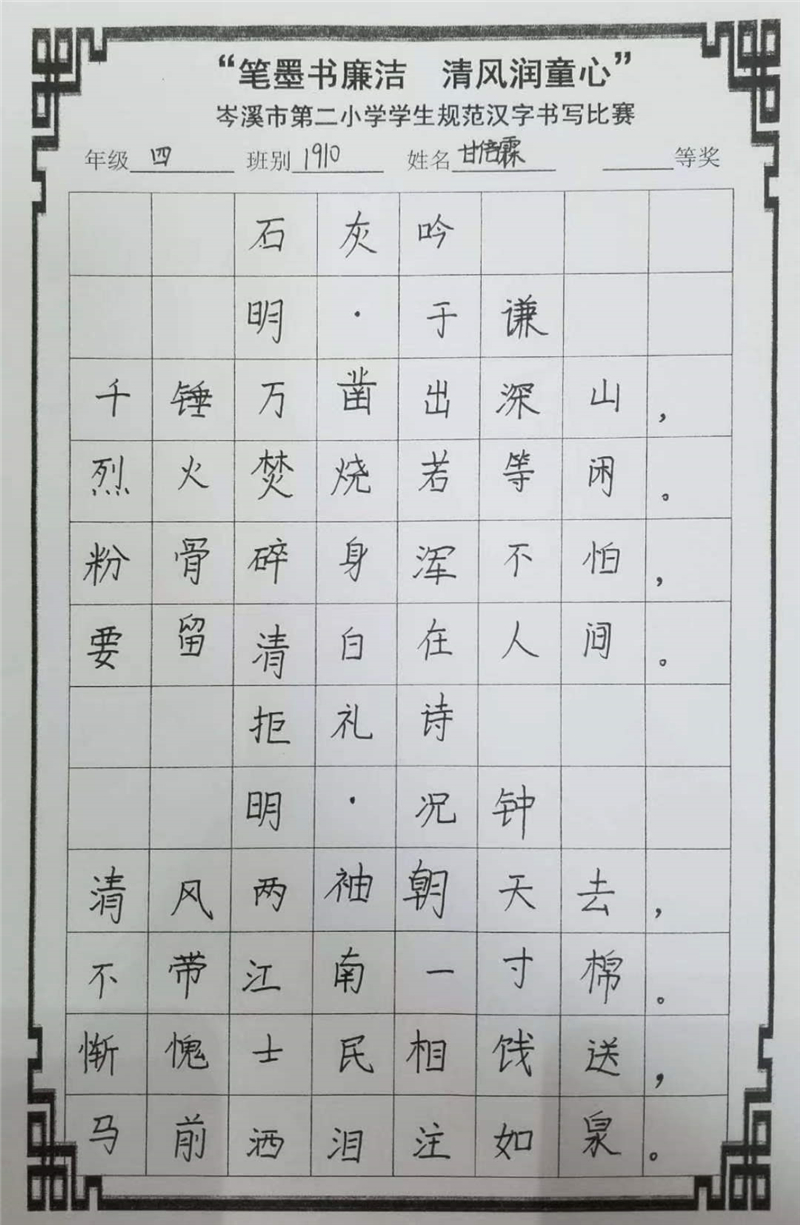 “笔墨书廉洁 清风润童心”
岑溪市第二小学学生规范汉字书写比赛
年级 四 班别 1910 姓名 甘倍霖 等奖
石灰吟
明·于谦
千锤万凿出深山，
烈火焚烧若等闲。
粉骨碎身浑不怕，
要留清白在人间。
拒礼诗
明·况钟
清风两袖朝天去，
不带江南一寸棉。
惭愧士民相饯送，
马前洒泪注如泉。